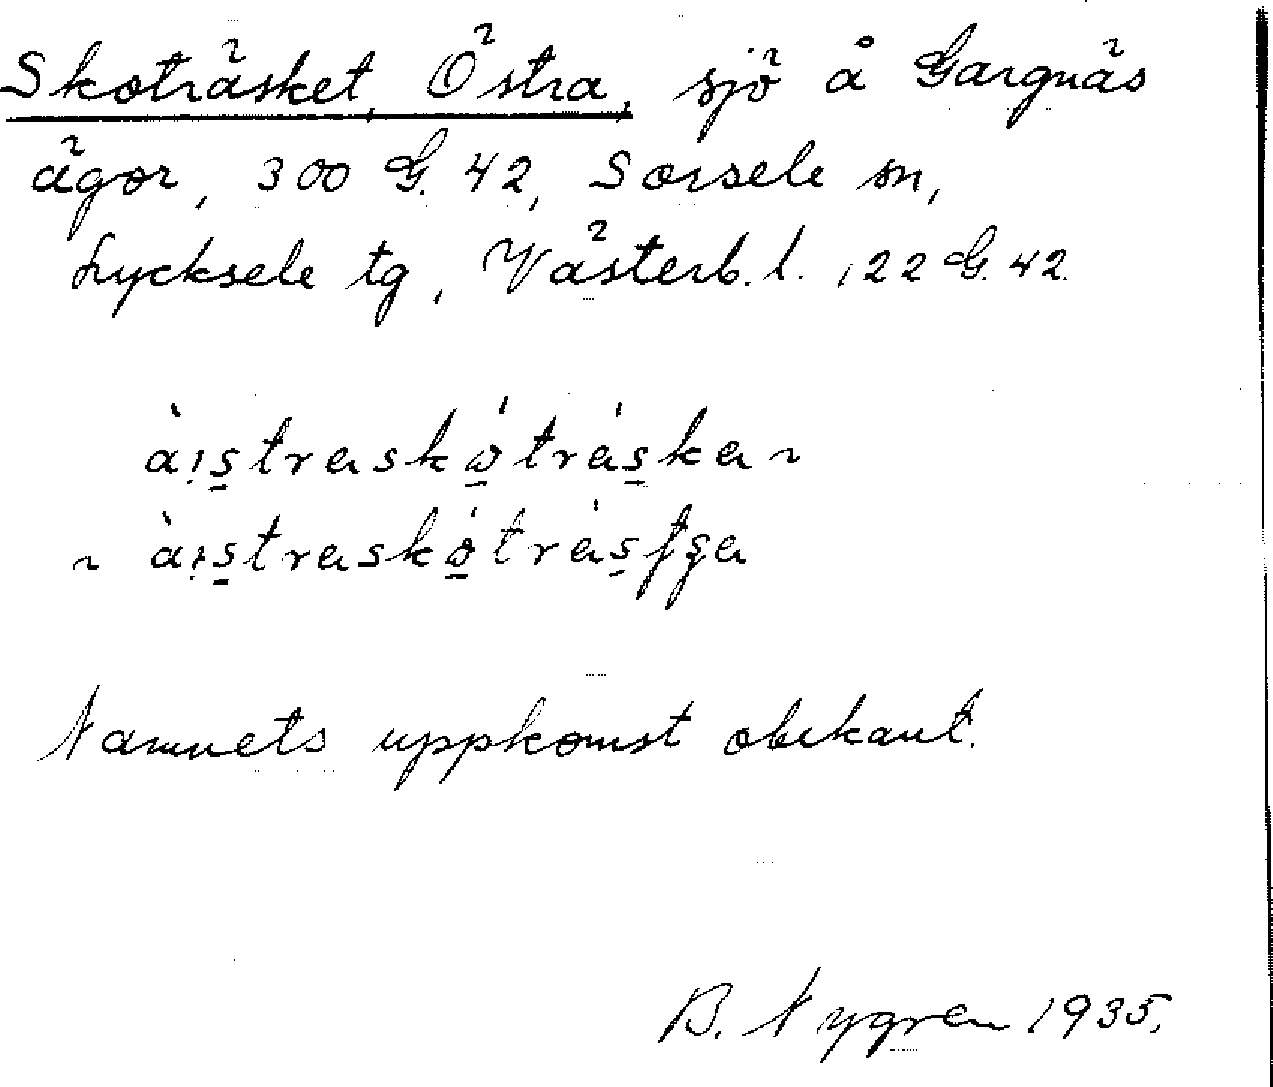 Skoträsket, Östra, sjö å Gargnäs
ägor, 300 G. 42, Sorsele sn,
Lycksele tg, Västerb. l., 22 G. 42.
Namnets uppkomst obekant.
B. Nygren 1935.